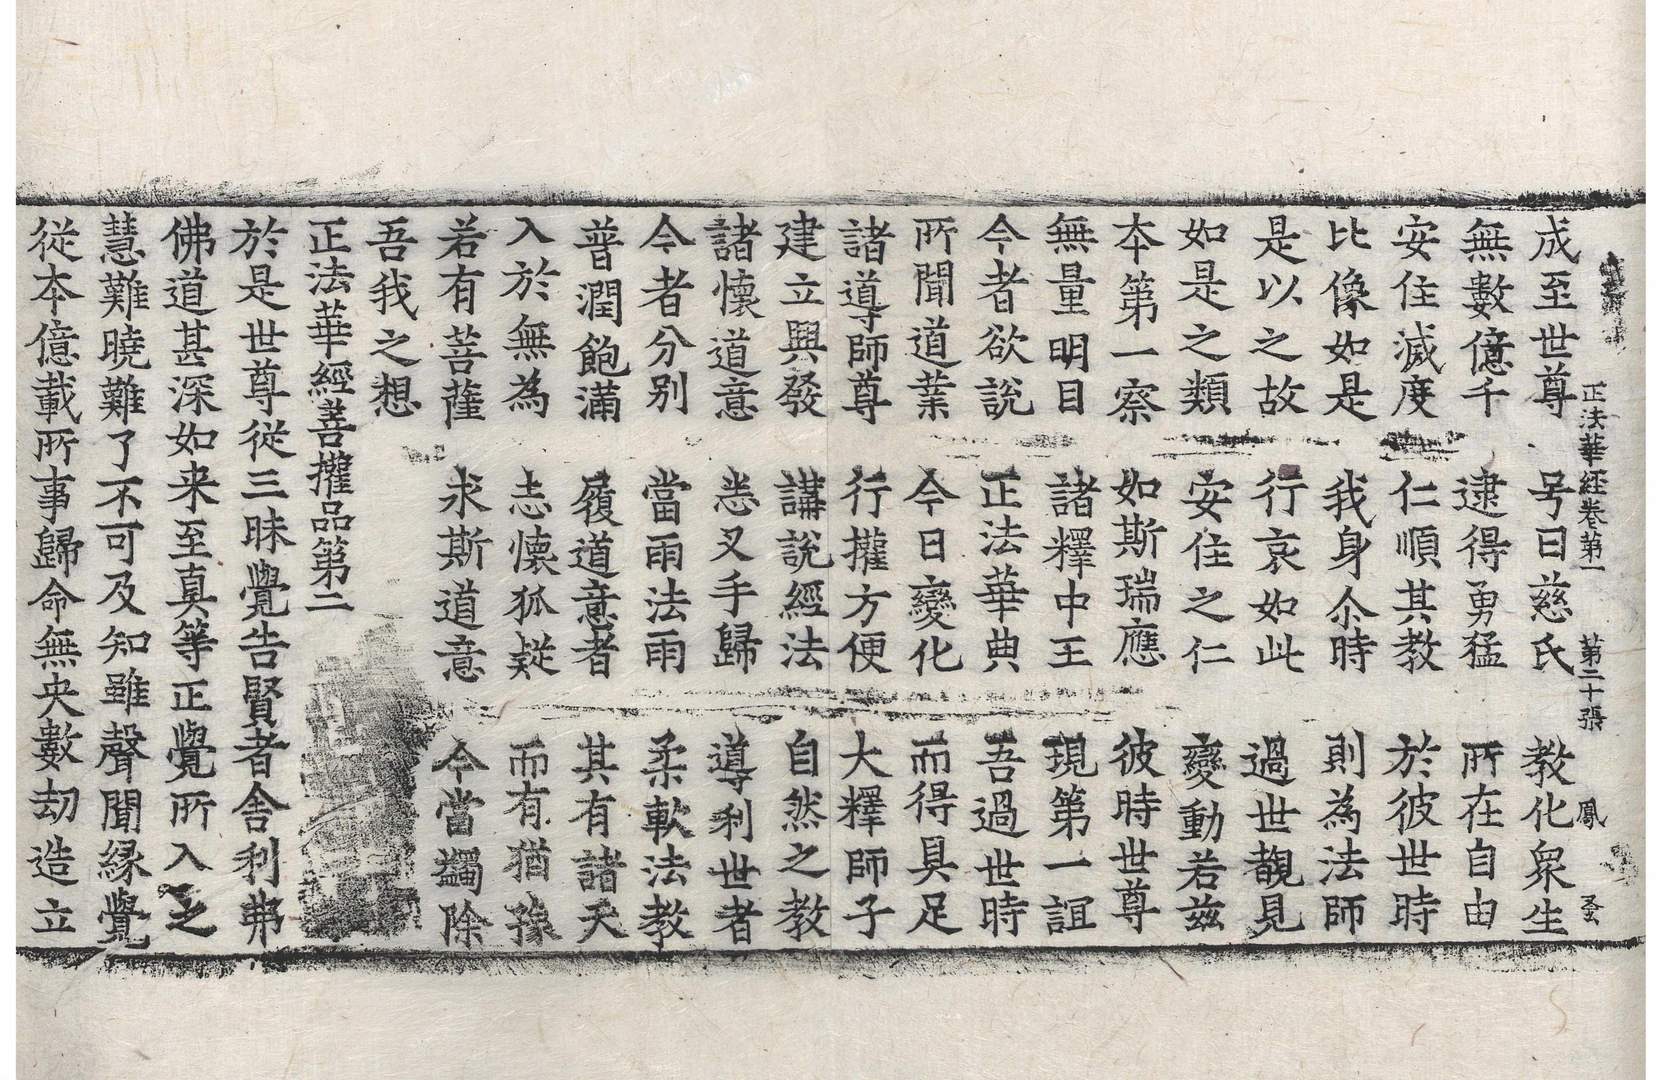 正法華經卷第一 第二十張 鳳 𫝆
成至世尊 号曰慈氏 教化衆生
無數億千 逮得勇猛 所在自由
安住滅度 仁順其教 於彼世時
比像如是 我身尒時 則為法師
是以之故 行哀如此 過世覩見
如是之類 安住之仁 變動若兹
夲第一察 如斯瑞應 彼時世尊
無量明目 諸釋中王 現第一誼
今者欲說 正法華典 吾過世時
所聞道業 今日變化 而得具足
諸導師尊 行權方便 大釋師子
建立興發 講說經法 自然之教
諸懷道意 悉叉手歸 導利世者
今者分别 當雨法雨 柔軟法教
普潤飽滿 履道意者 其有諸天
入於無為 志懷狐疑 而有猶豫
若有菩薩 求斯道意 今當蠲除
吾我之想
正法華經菩權品第二
於是世尊從三昧覺告賢者舍利弗
佛道甚深如来至真等正覺所入之
慧難曉難了不可及知雖聲聞縁覺
從夲億載所事歸命無央數劫造立